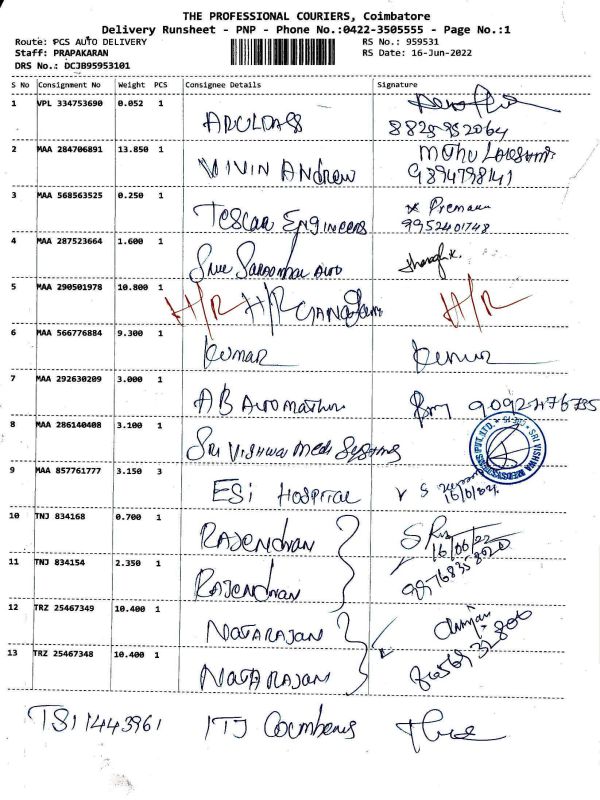 THE PROFESSIONAL COURIERS, Coimbatore
Delivery Runsheet - PNP - Phone No.:0422-3505555 - Page No.:1
Route: PCS AUTO DELIVERY RS No.: 959531
Staff: PRAPAKARAN RS Date: 16-Jun-2022
DRS No.: DCJB95953101
S No Consignment No Weight PCS Consignee Details Signature
1 VPL 334753690 0.052 1 ARULDASS
8825952064
2 MAA 284706891 13.850 1 VIVIN ANDREW
9894798141
3 MAA 568563525 0.250 1 TESCAR ENGINEERS
9952401748
4 MAA 287523664 1.600 1 Auto
5 MAA 290501978 10.800 1 H/R H/R H/R
6 MAA 566776884 9.300 1 Kumar Kumar
7 MAA 292630209 3.000 1 AB
8 MAA 286140408 3.100 1 Sri Vishwa Medi Systems
SRI VISHWA MEDISYSTEMS PVT.LTD.
9 MAA 857761777 3.150 3 ESI HOSPITAL
10 TNJ 834168 0.700 1 RAJENDRAN
16/06/22
11 TNJ 834154 2.350 1 RAJENDRAN
9876835820
12 TRZ 25467349 10.400 1 NATARAJAN
13 TRZ 25467348 10.400 1 NATARAJAN
TSI 1443961 ITJ